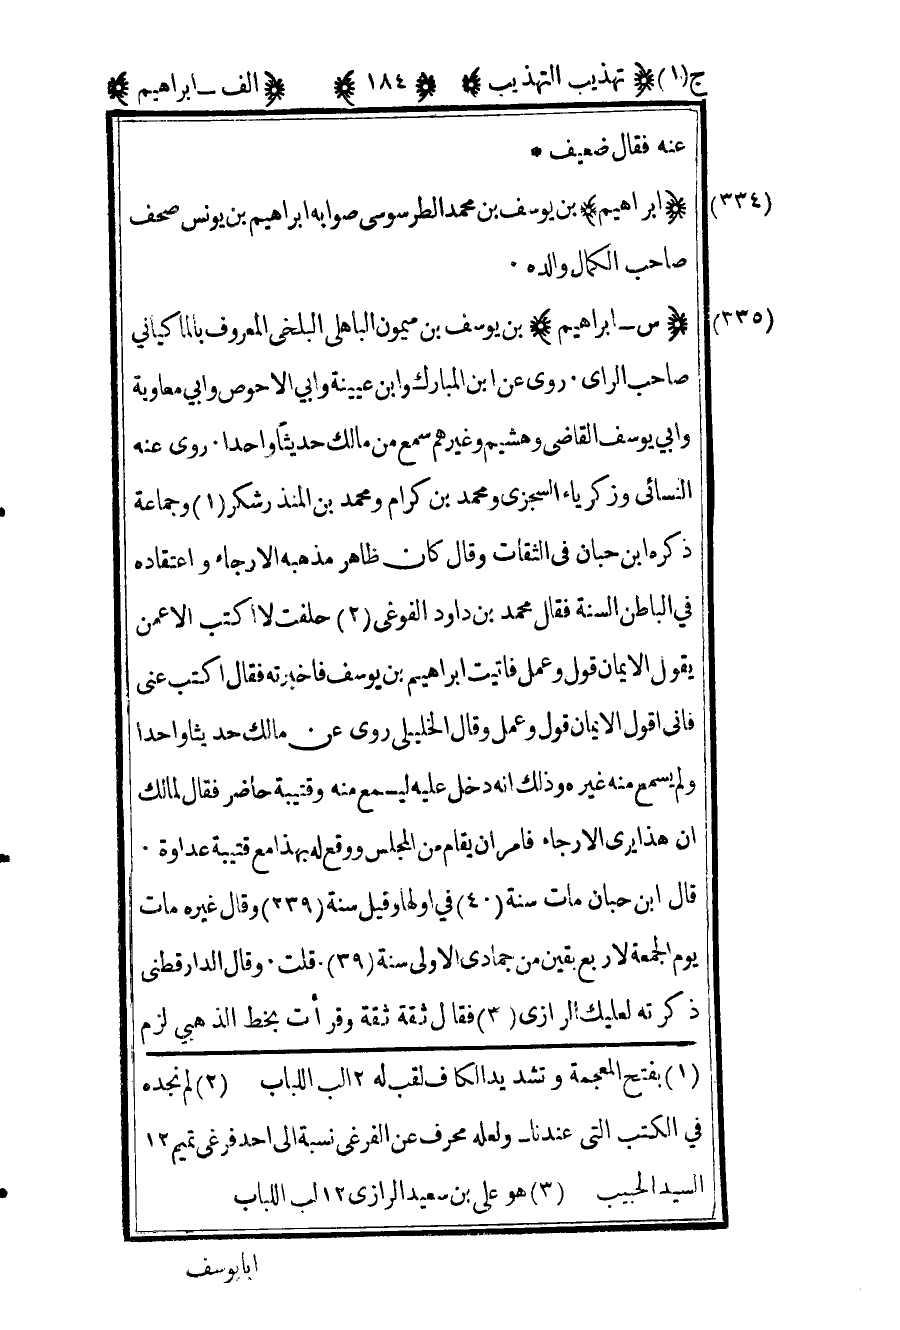 ج(١) ﴿ تهذيب التهذيب ﴾ ﴿ ١٨٤ ﴾ ﴿ الف ـ ابراهيم ﴾
عنه فقال ضعيف *
(٣٣٤) ﴿ ابراهيم ﴾ بن يوسف بن محمد الطرسوسى صوابه ابراهيم بن يونس صحف
صاحب الكمال والده ٠
(٣٣٥) ﴿ س ـ ابراهيم ﴾ بن يوسف بن ميمون الباهلى البلخى المعروف بالماكيانى
صاحب الراى ٠ روى عن ابن المبارك وابن عيينة وابي الاحوص وابي معاوية
وابي يوسف القاضى وهشيم وغيرهم سمع من مالك حديثاً واحدا ٠ روى عنه
النسائى وزكرياء السجزى ومحمد بن كرام ومحمد بن المنذر شكر (١) وجماعة
ذكره ابن حبان فى الثقات وقال كان ظاهر مذهبه الارجاء و اعتقاده
في الباطن السنة فقال محمد بن داود الفوغى (٢) حلفت لا اكتب الا عمن
يقول الايمان قول وعمل فاتيت ابراهيم بن يوسف فاخبرته فقال اكتب عنى
فانى اقول الايمان قول وعمل وقال الخليلى روى عن مالك حديثا واحدا
ولم يسمع منه غيره وذلك انه دخل عليه ليسمع منه وقتيبة حاضر فقال لمالك
ان هذا يرى الارجاء فامر ان يقام من المجلس ووقع له بهذا مع قتيبة عداوة ٠
قال ابن حبان مات سنة (٤٠) في اولها وقيل سنة (٢٣٩) وقال غيره مات
يوم الجمعة لاربع بقين من جمادى الاولى سنة (٣٩) ٠ قلت ٠ وقال الدارقطنى
ذكرته لعليك الرازى (٣) فقال ثقة ثقة وقرأت بخط الذهبي لزم
(١) بفتح المعجمة و تشديد الكاف لقب له ١٢ لب اللباب (٢) لم نجده
في الكتب التى عندنا ـ ولعله محرف عن الفرغى نسبة الى احد فرغى تميم ١٢
السيد الحبيب (٣) هو على بن سعيد الرازى ١٢ لب اللباب
ابايوسف